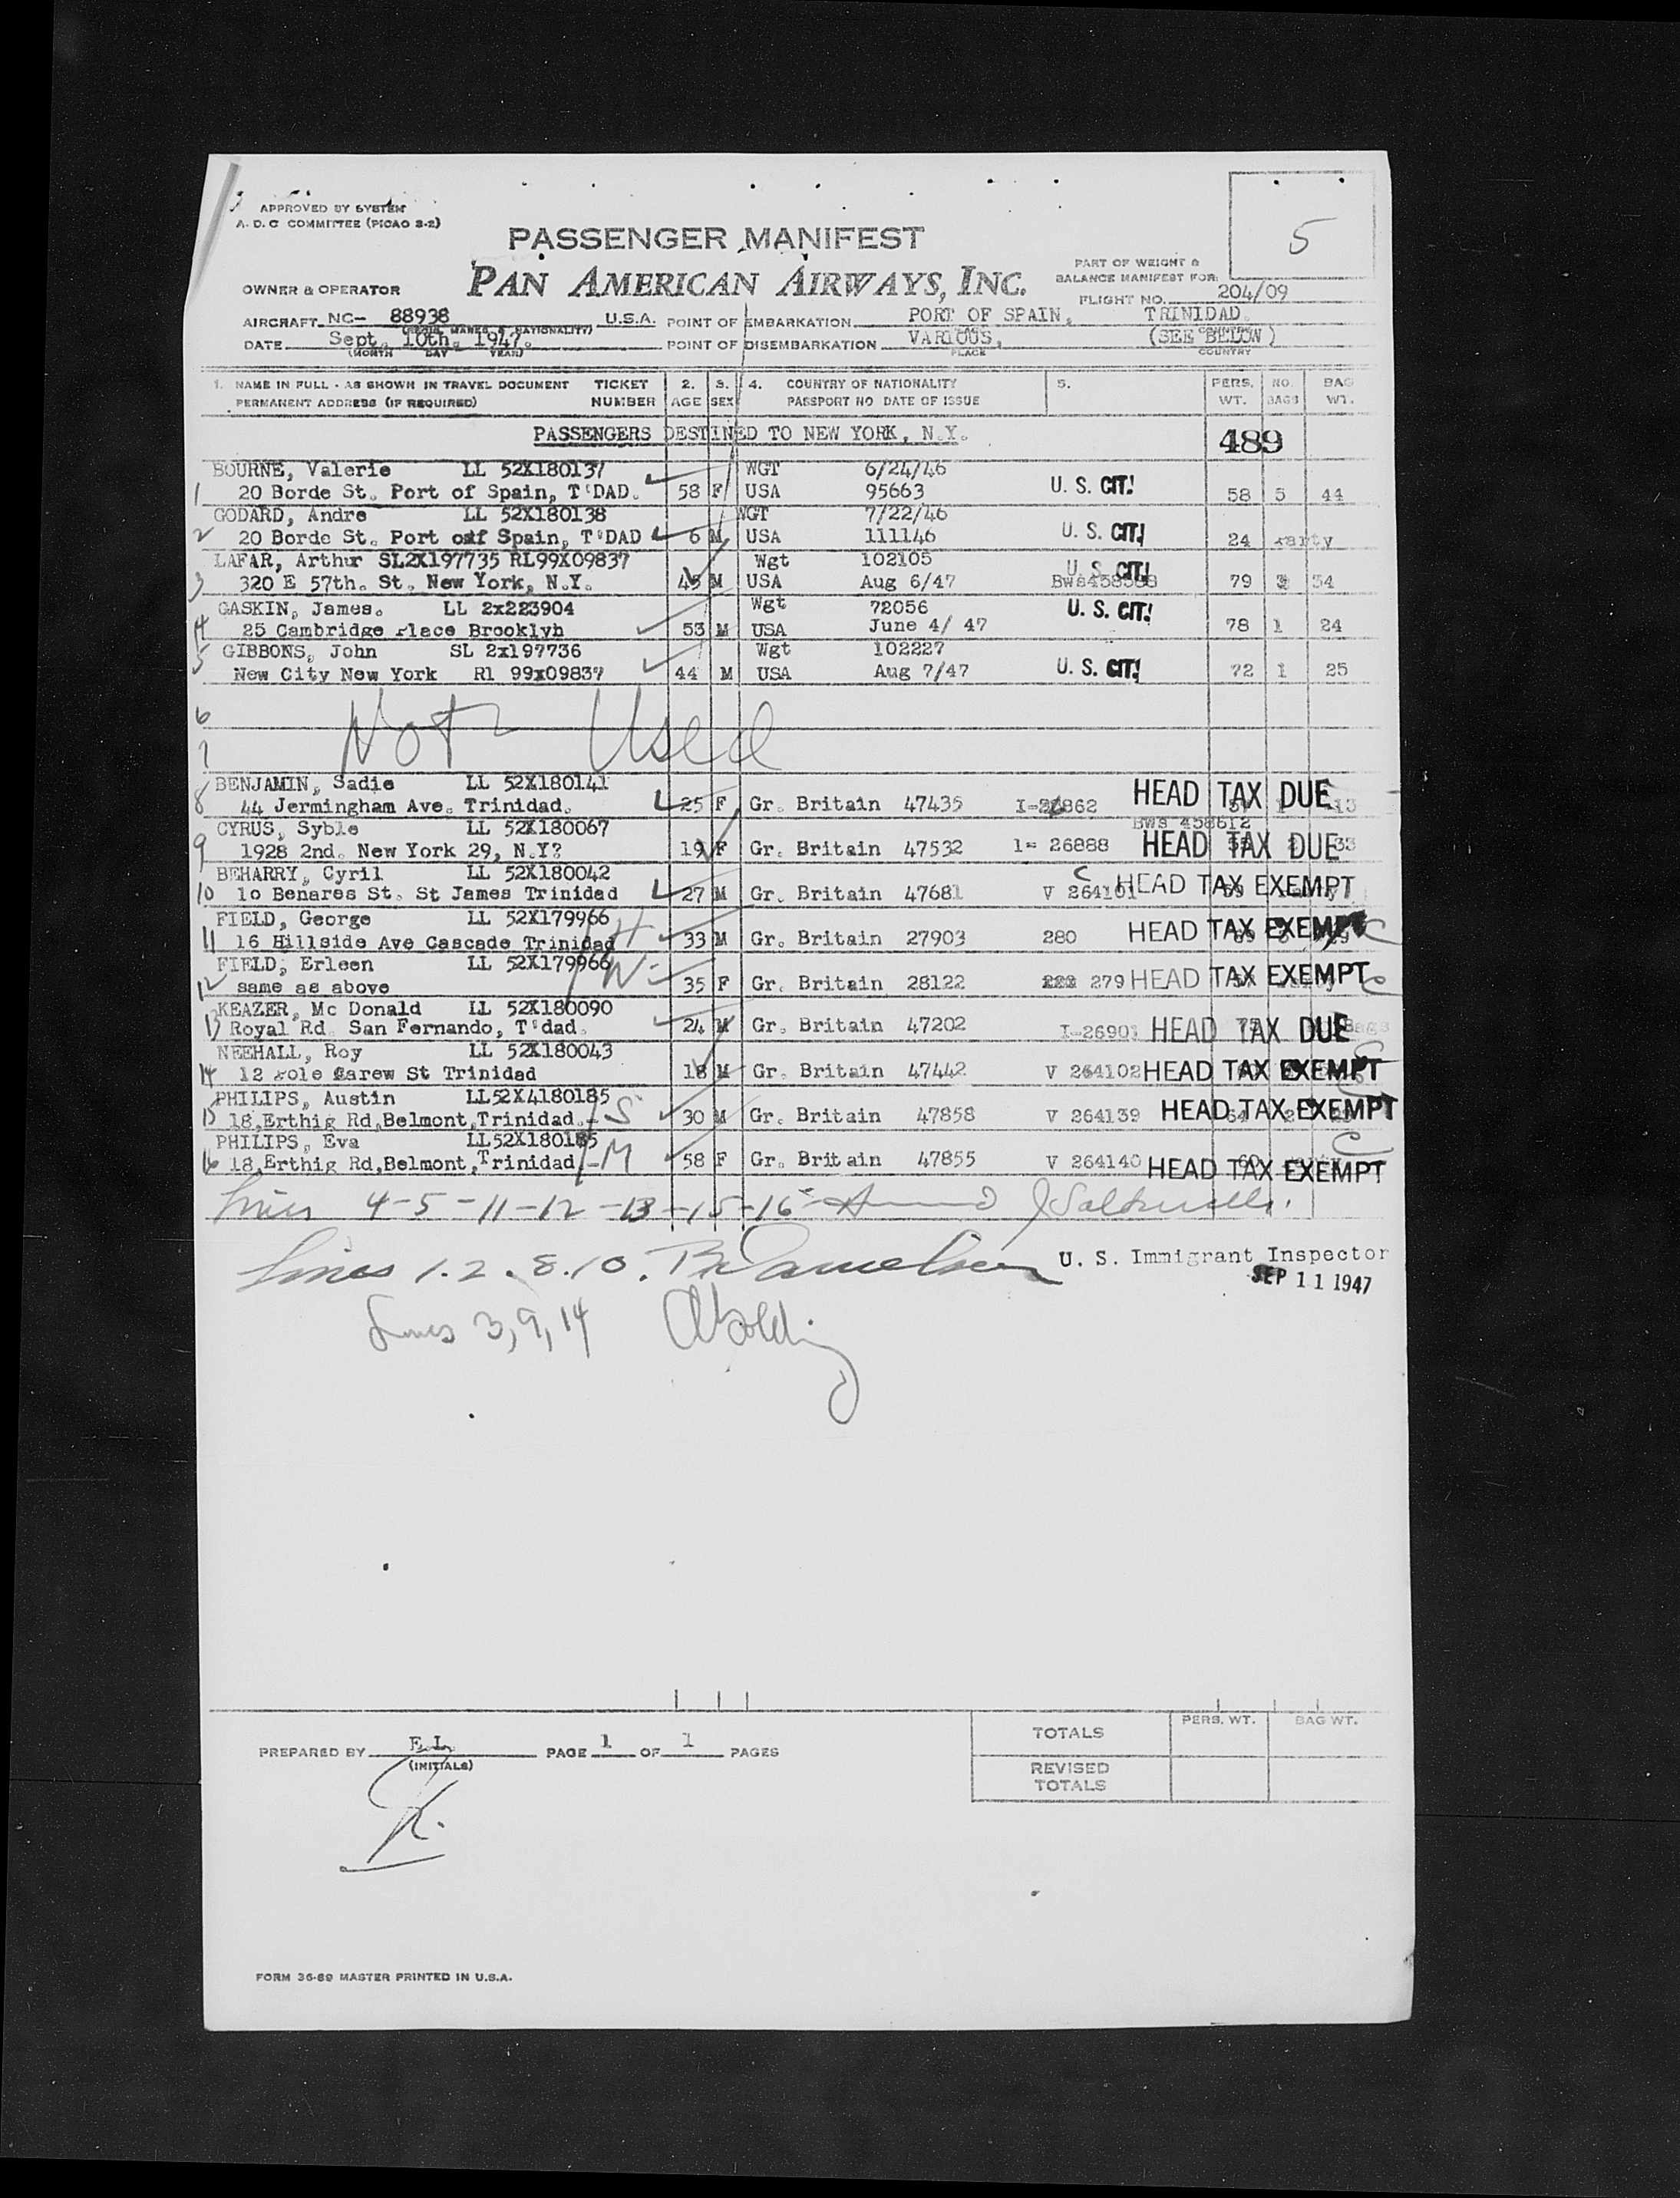 APPROVED BY SYSTEM
A. D. C COMMITTEE (PICAO 3-2)
5
PASSENGER MANIFEST
PAN AMERICAN AIRWAYS, INC.
PART OF WEIGHT &
BALANCE MANIFEST FOR:
OWNER & OPERATOR
FLIGHT NO. 204/09
AIRCRAFT NC- 88938 U.S.A. POINT OF EMBARKATION PORT OF SPAIN, TRINIDAD.
(REGIS. MARKS & NATIONALITY)
DATE Sept. 10th. 1947. POINT OF DISEMBARKATION VARIOUS, (SEE BELOW)
(MONTH DAY YEAR) PLACE COUNTRY
1. NAME IN FULL - AS SHOWN IN TRAVEL DOCUMENT TICKET 2. 3. 4. COUNTRY OF NATIONALITY 5. PERS. NO. BAG
PERMANENT ADDRESS (IF REQUIRED) NUMBER AGE SEX PASSPORT NO DATE OF ISSUE WT. BAGS WT.
PASSENGERS DESTINED TO NEW YORK, N.Y. 489
BOURNE, Valerie LL 52X180137 WGT 6/24/46
1 20 Borde St. Port of Spain, T'DAD. 58 F USA 95663 U. S. CIT! 58 5 44
GODARD, Andre LL 52X180138 WGT 7/22/46
2 20 Borde St. Port of Spain, T'DAD 6 M USA 111146 U. S. CIT! 24
LAFAR, Arthur SL2X197735 RL99X09837 Wgt 102105 U. S. CIT!
3 320 E 57th. St. New York, N.Y. 45 M USA Aug 6/47 79 34
GASKIN, James. LL 2x223904 Wgt 72056 U. S. CIT!
4 25 Cambridge Place Brooklyh 53 M USA June 4/ 47 78 1 24
GIBBONS, John SL 2x197736 Wgt 102227
5 New City New York Rl 99x09837 44 M USA Aug 7/47 U. S. CIT! 72 1 25
6
7 Not Used
BENJAMIN, Sadie LL 52X180141
8 44 Jermingham Ave. Trinidad. 25 F Gr. Britain 47435 HEAD TAX DUE
CYRUS, Syble LL 52X180067 BWS 458612
9 1928 2nd. New York 29, N.Y? 19 F Gr. Britain 47532 1- 26888 HEAD TAX DUE 33
BEHARRY, Cyril LL 52X180042 C
10 10 Benares St. St James Trinidad 27 M Gr. Britain 47681 V 264101 HEAD TAX EXEMPT
FIELD, George LL 52X179966 H
11 16 Hillside Ave Cascade Trinidad 33 M Gr. Britain 27903 280 HEAD TAX EXEMPT C
FIELD, Erleen LL 52X179966 W
12 same as above 35 F Gr. Britain 28122 279 HEAD TAX EXEMPT C
KEAZER, Mc Donald LL 52X180090
13 Royal Rd. San Fernando, T'dad. 24 M Gr. Britain 47202 HEAD TAX DUE
NEEHALL, Roy LL 52X180043
14 12 Pole Carew St Trinidad 18 M Gr. Britain 47442 V 264102 HEAD TAX EXEMPT
PHILIPS, Austin LL52X4180185
15 18,Erthig Rd,Belmont,Trinidad. S 30 M Gr. Britain 47858 V 264139 HEAD TAX EXEMPT
PHILIPS, Eva LL52X180185 C
16 18,Erthig Rd,Belmont,Trinidad. M 58 F Gr. Britain 47855 V 264140 HEAD TAX EXEMPT
Lines 4-5-11-12-13-15-16
Lines 1.2.8.10. U. S. Immigrant Inspector
SEP 11 1947
Lines 3,9,14
PREPARED BY E.L. PAGE 1 OF 1 PAGES
(INITIALS)
TOTALS PERS. WT. BAG WT.
REVISED
TOTALS
FORM 36-89 MASTER PRINTED IN U.S.A.